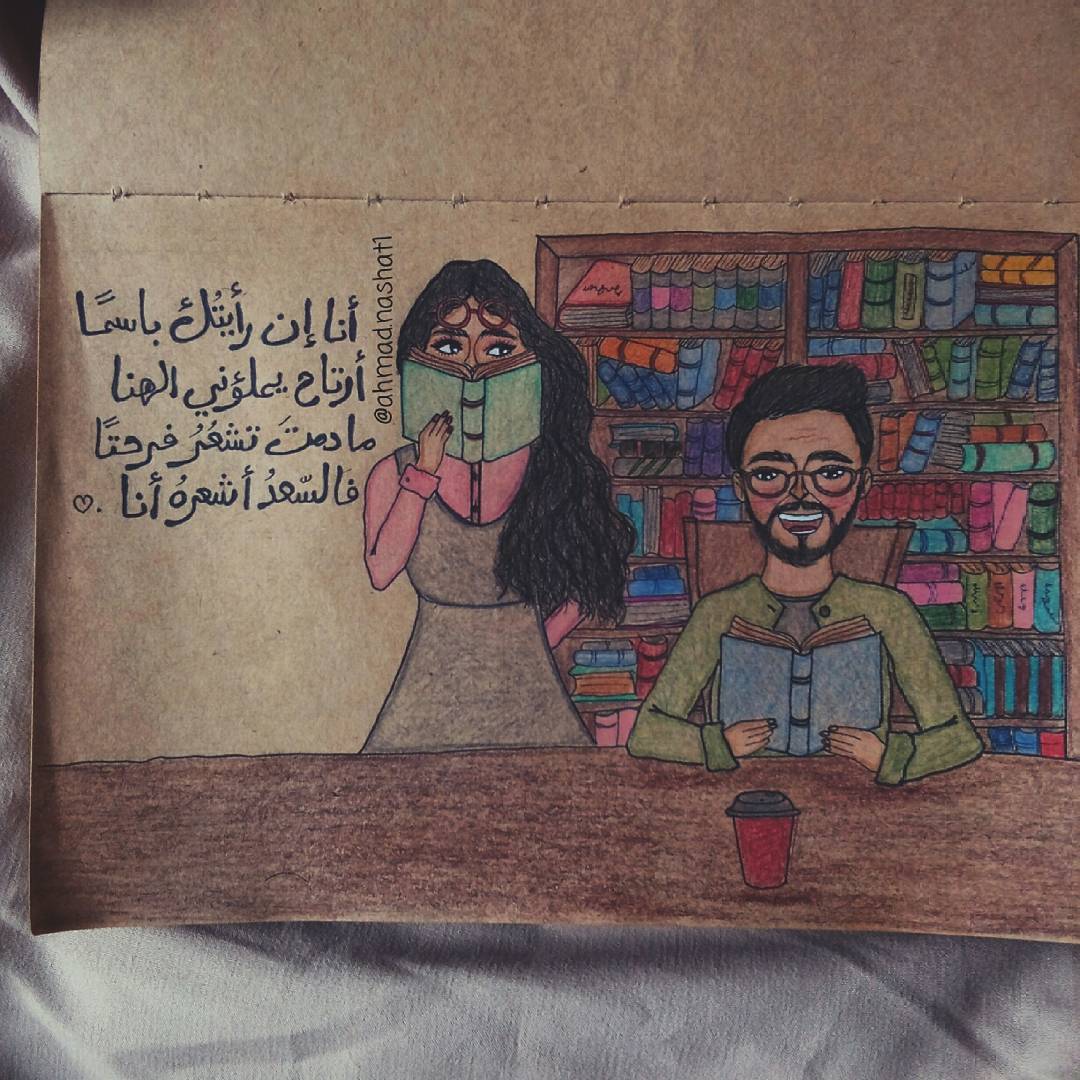 أنا إن رأيتُكَ باسمًا
أرتاح يملؤني الهنا
مادمتَ تشعُرُ فرحتًا
فالسّعدُ أشعرهُ أنا .♡
@ahmadnashat1